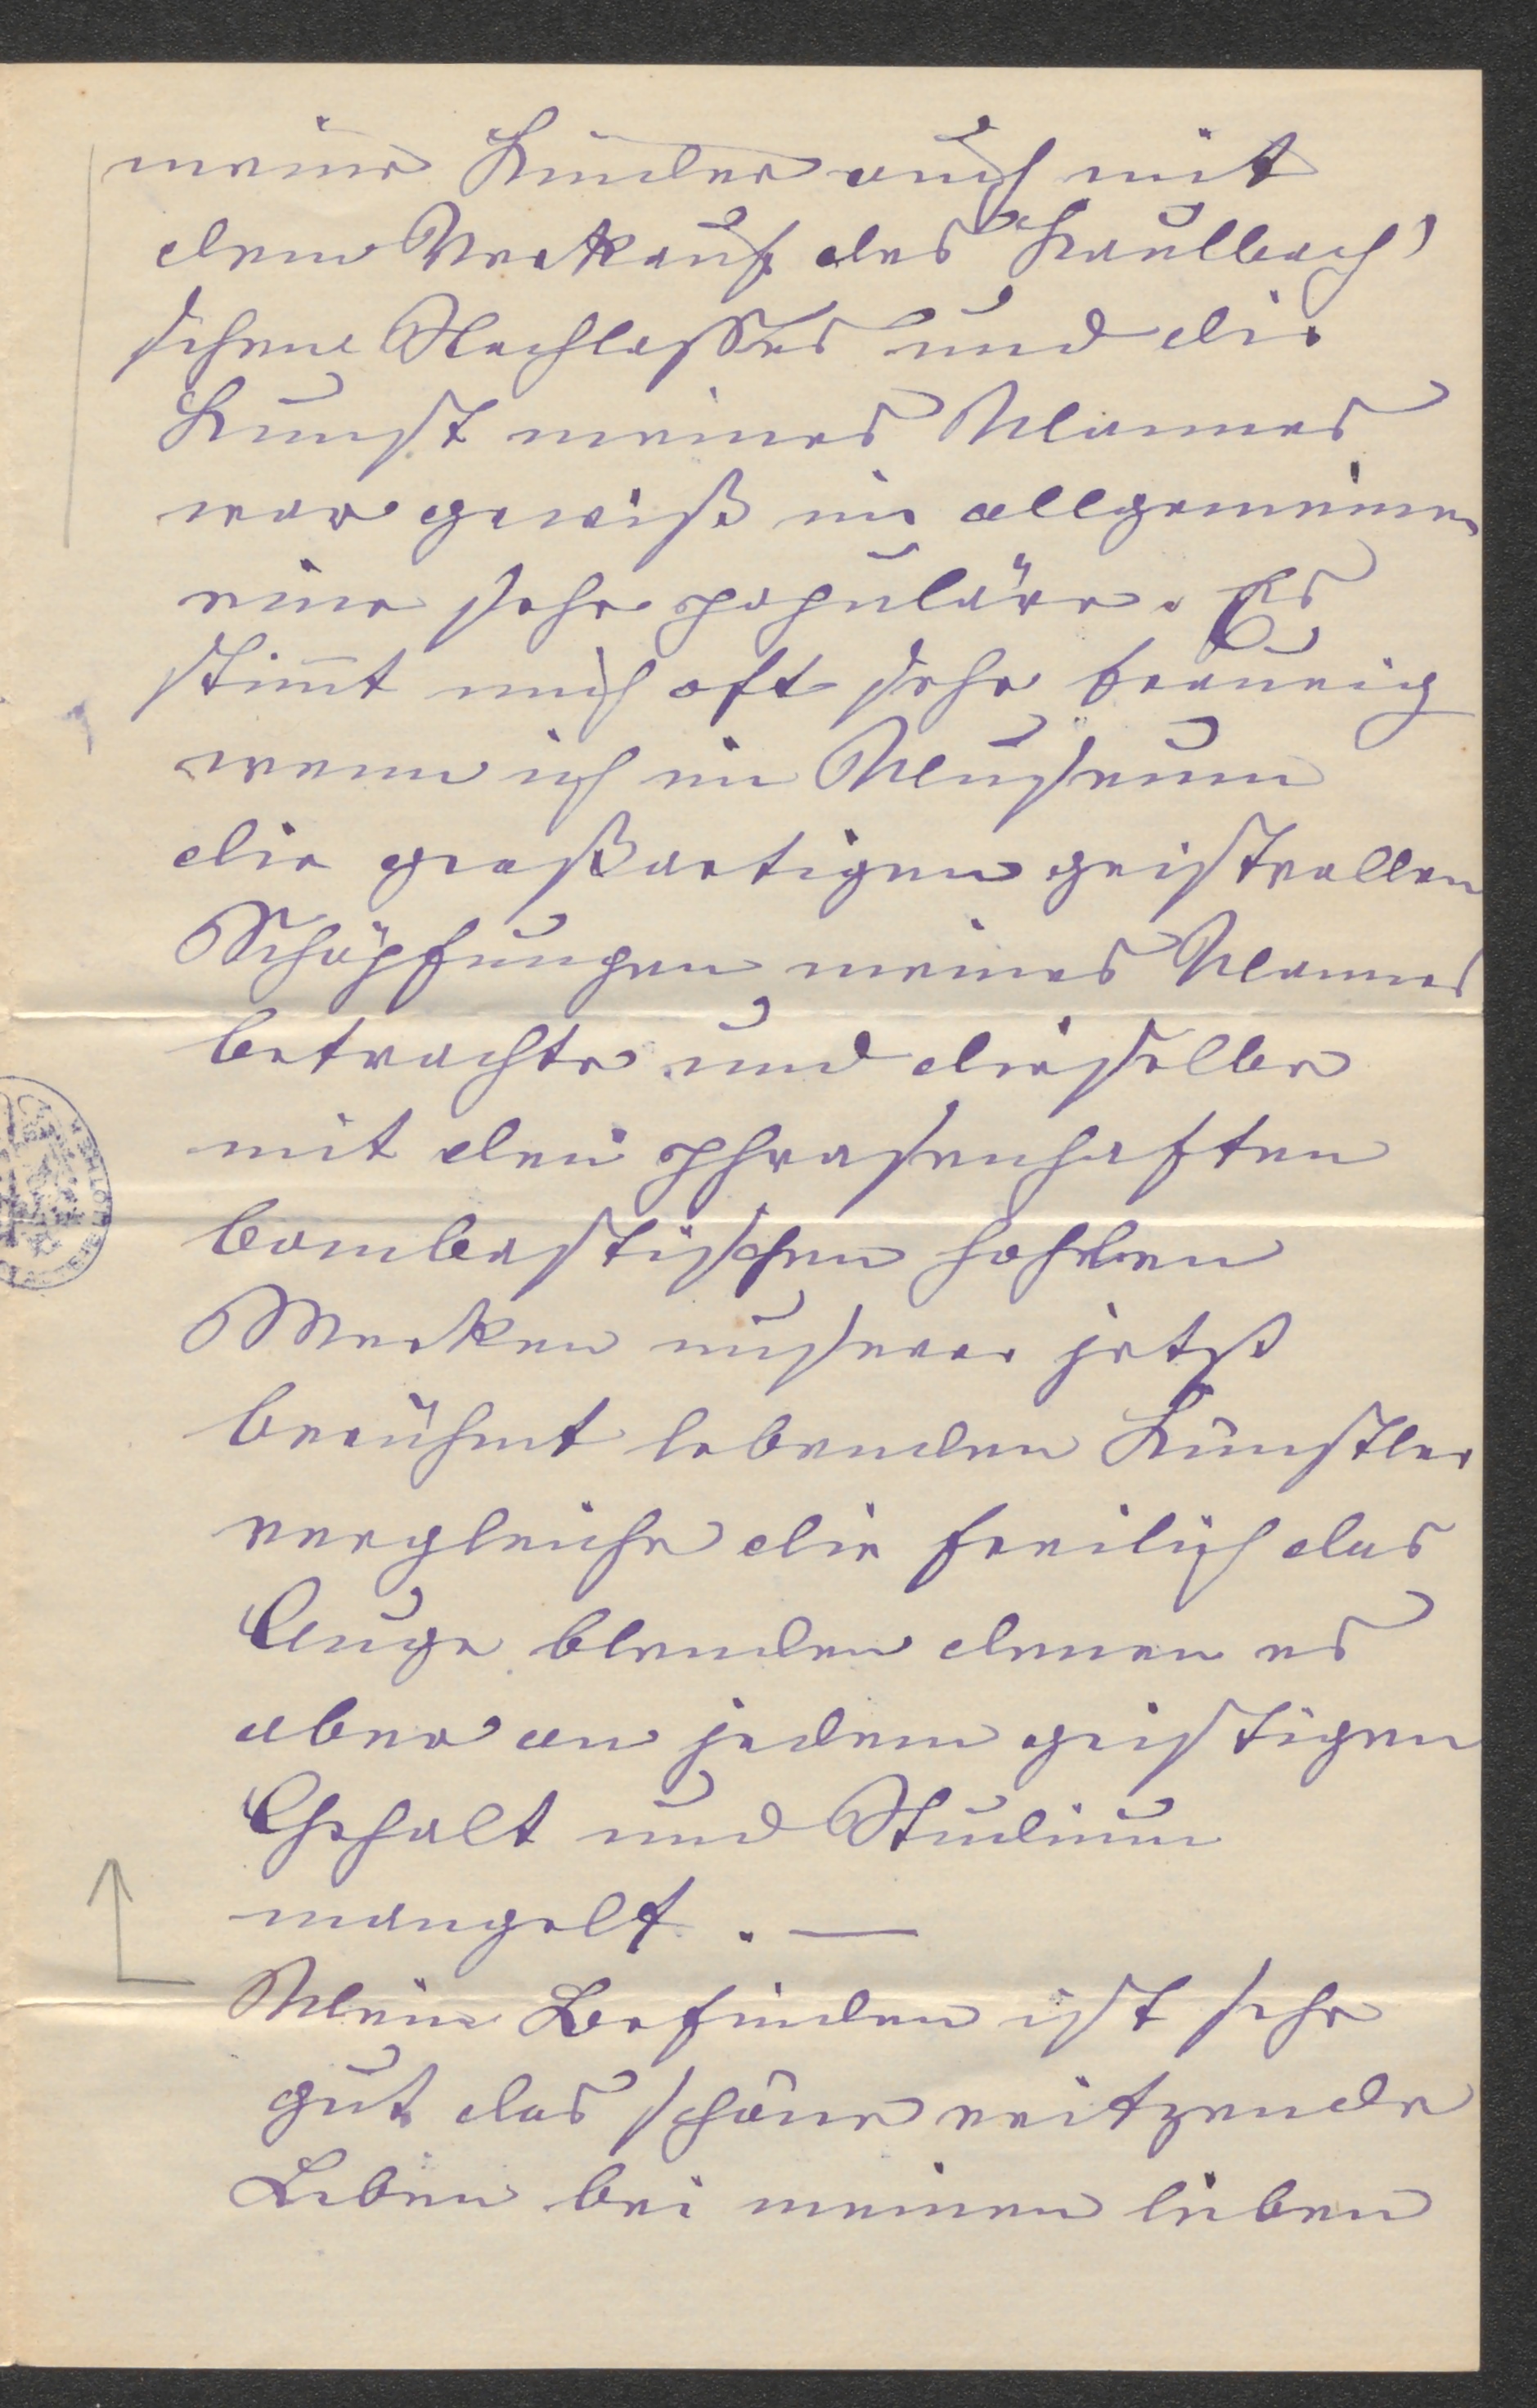 meine Kinder auch mit
dem Verkauf des Kaulbach'
schen Nachlasses und die
Kunst meines Mannes
war gewiß im allgemeinen
eine sehr populäre. Es
stim̅t mich oft sehr traurig
wenn ich im Museum
die großartigen geistvollen
Schöpfungen meines Mannes
betrachte und dieselbe
mit den phrasenhaften
bombastischen hohlen
Werken unserer jetzt
berühmt lebenden Künstler
vergleiche die freilich das
Auge blenden denen es
aber an jedem geistigen
Gehalt und Studium
mangelt. —
Mein Befinden ist sehr
gut das schöne reitzende
Leben bei meinen lieben